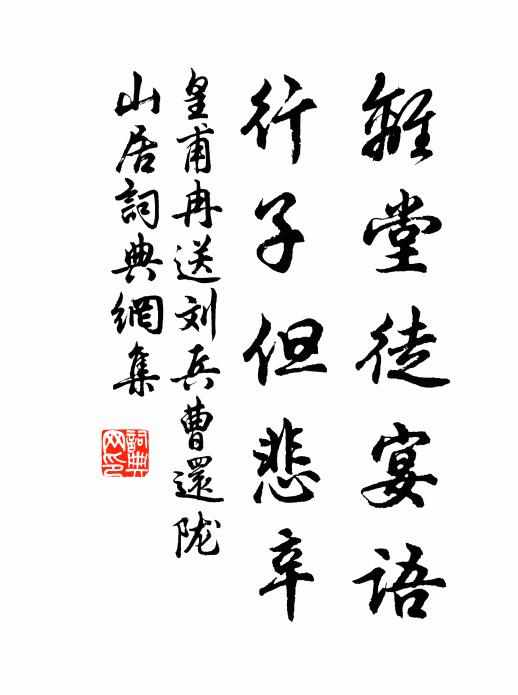 離堂徒宴語
行子但悲辛
皇甫冉送刘兵曹還陇
山居詞典網集
詞典網印